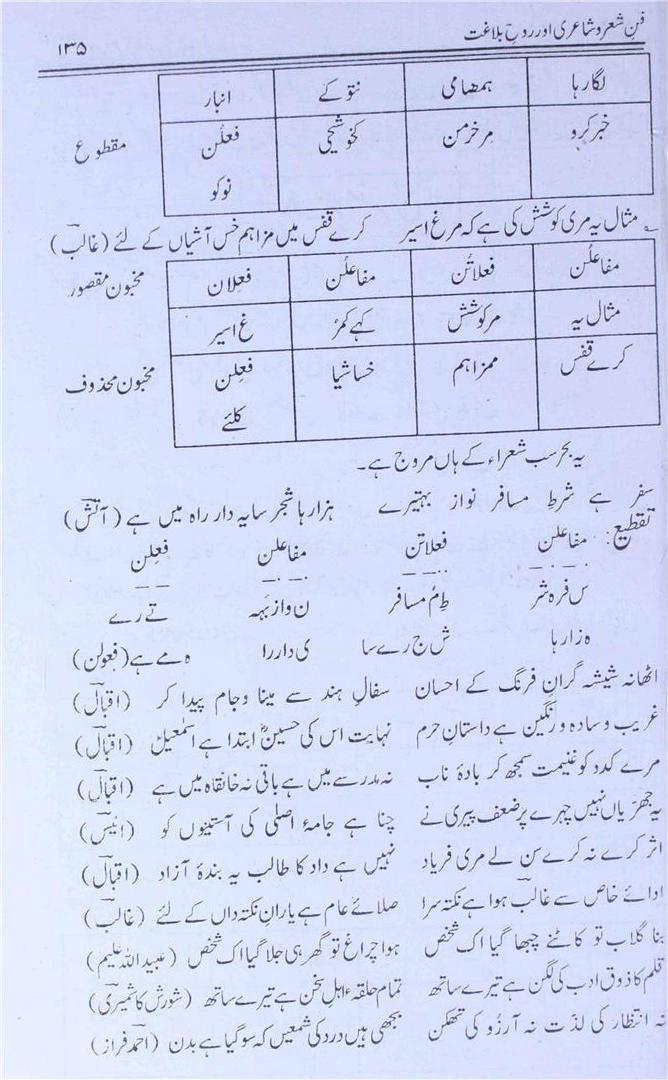 فنِ شعر و شاعری اور روحِ بلاغت ۱۳۵
لگا رہا ہمضامی نتو کے انبار
خبر کرو مرخرمن کخوشچی فعلُن نوکو مقطوع
مثال یہ مری کوشش کی ہے کہ مرغ اسیر کرے قفس میں مزاہم خس آشیاں کے لئے (غالب)
مفاعلُن فعلاتُن مفاعلُن فعِلان مخبون مقصور
مثال یہ مرکوشش کہے کمر غ اسیر
کرے قفس ممزاہم خساشیا فعِلن کلئے مخبون محذوف
یہ بحر سب شعراء کے ہاں مروج ہے۔
سفر ہے شرط مسافر نواز بہتیرے ہزارہا شجر سایہ دار راہ میں ہے (آتش)
تقطیع: مفاعلن فعلاتن مفاعلن فعِلن
س فرہ شر طِ مُ مسافر ن واز بہہ تے رے
ہ زارہا ش ج رے سا ی دار را ہ مے ہے (فعولن)
اٹھا نہ شیشہ گرانِ فرنگ کے احسان سفالِ ہند سے مینا و جام پیدا کر (اقبال)
غریب و سادہ و رنگین ہے داستانِ حرم نہایت اس کی حسینؓ ابتدا ہے اسمٰعیلؑ (اقبال)
مرے کدد کو غنیمت سمجھ کر بادۂ ناب نہ مدرسے میں ہے باقی نہ خانقاہ میں ہے (اقبال)
یہ جھریاں نہیں چہرے پر ضعف پیری نے چنا ہے جامۂ اصلی کی آستینوں کو (انیس)
اثر کرے نہ کرے سن لے مری فریاد نہیں ہے داد کا طالب یہ بندۂ آزاد (اقبال)
ادائے خاص سے غالب ہوا ہے نکتہ سرا صلائے عام ہے یارانِ نکتہ داں کے لئے (غالب)
بنا گلاب تو کانٹے چبھا گیا اک شخص ہوا چراغ تو گھر ہی جلا گیا اک شخص (عبیداللہ علیم)
قلم کا ذوق ادب کی لگن ہے تیرے ساتھ تمام حلقۂ اہلِ سخن ہے تیرے ساتھ (شورش کاشمیری)
نہ انتظار کی لذت نہ آرزو کی تھکن بجھی ہیں درد کی شمعیں کہ سو گیا ہے بدن (احمد فراز)